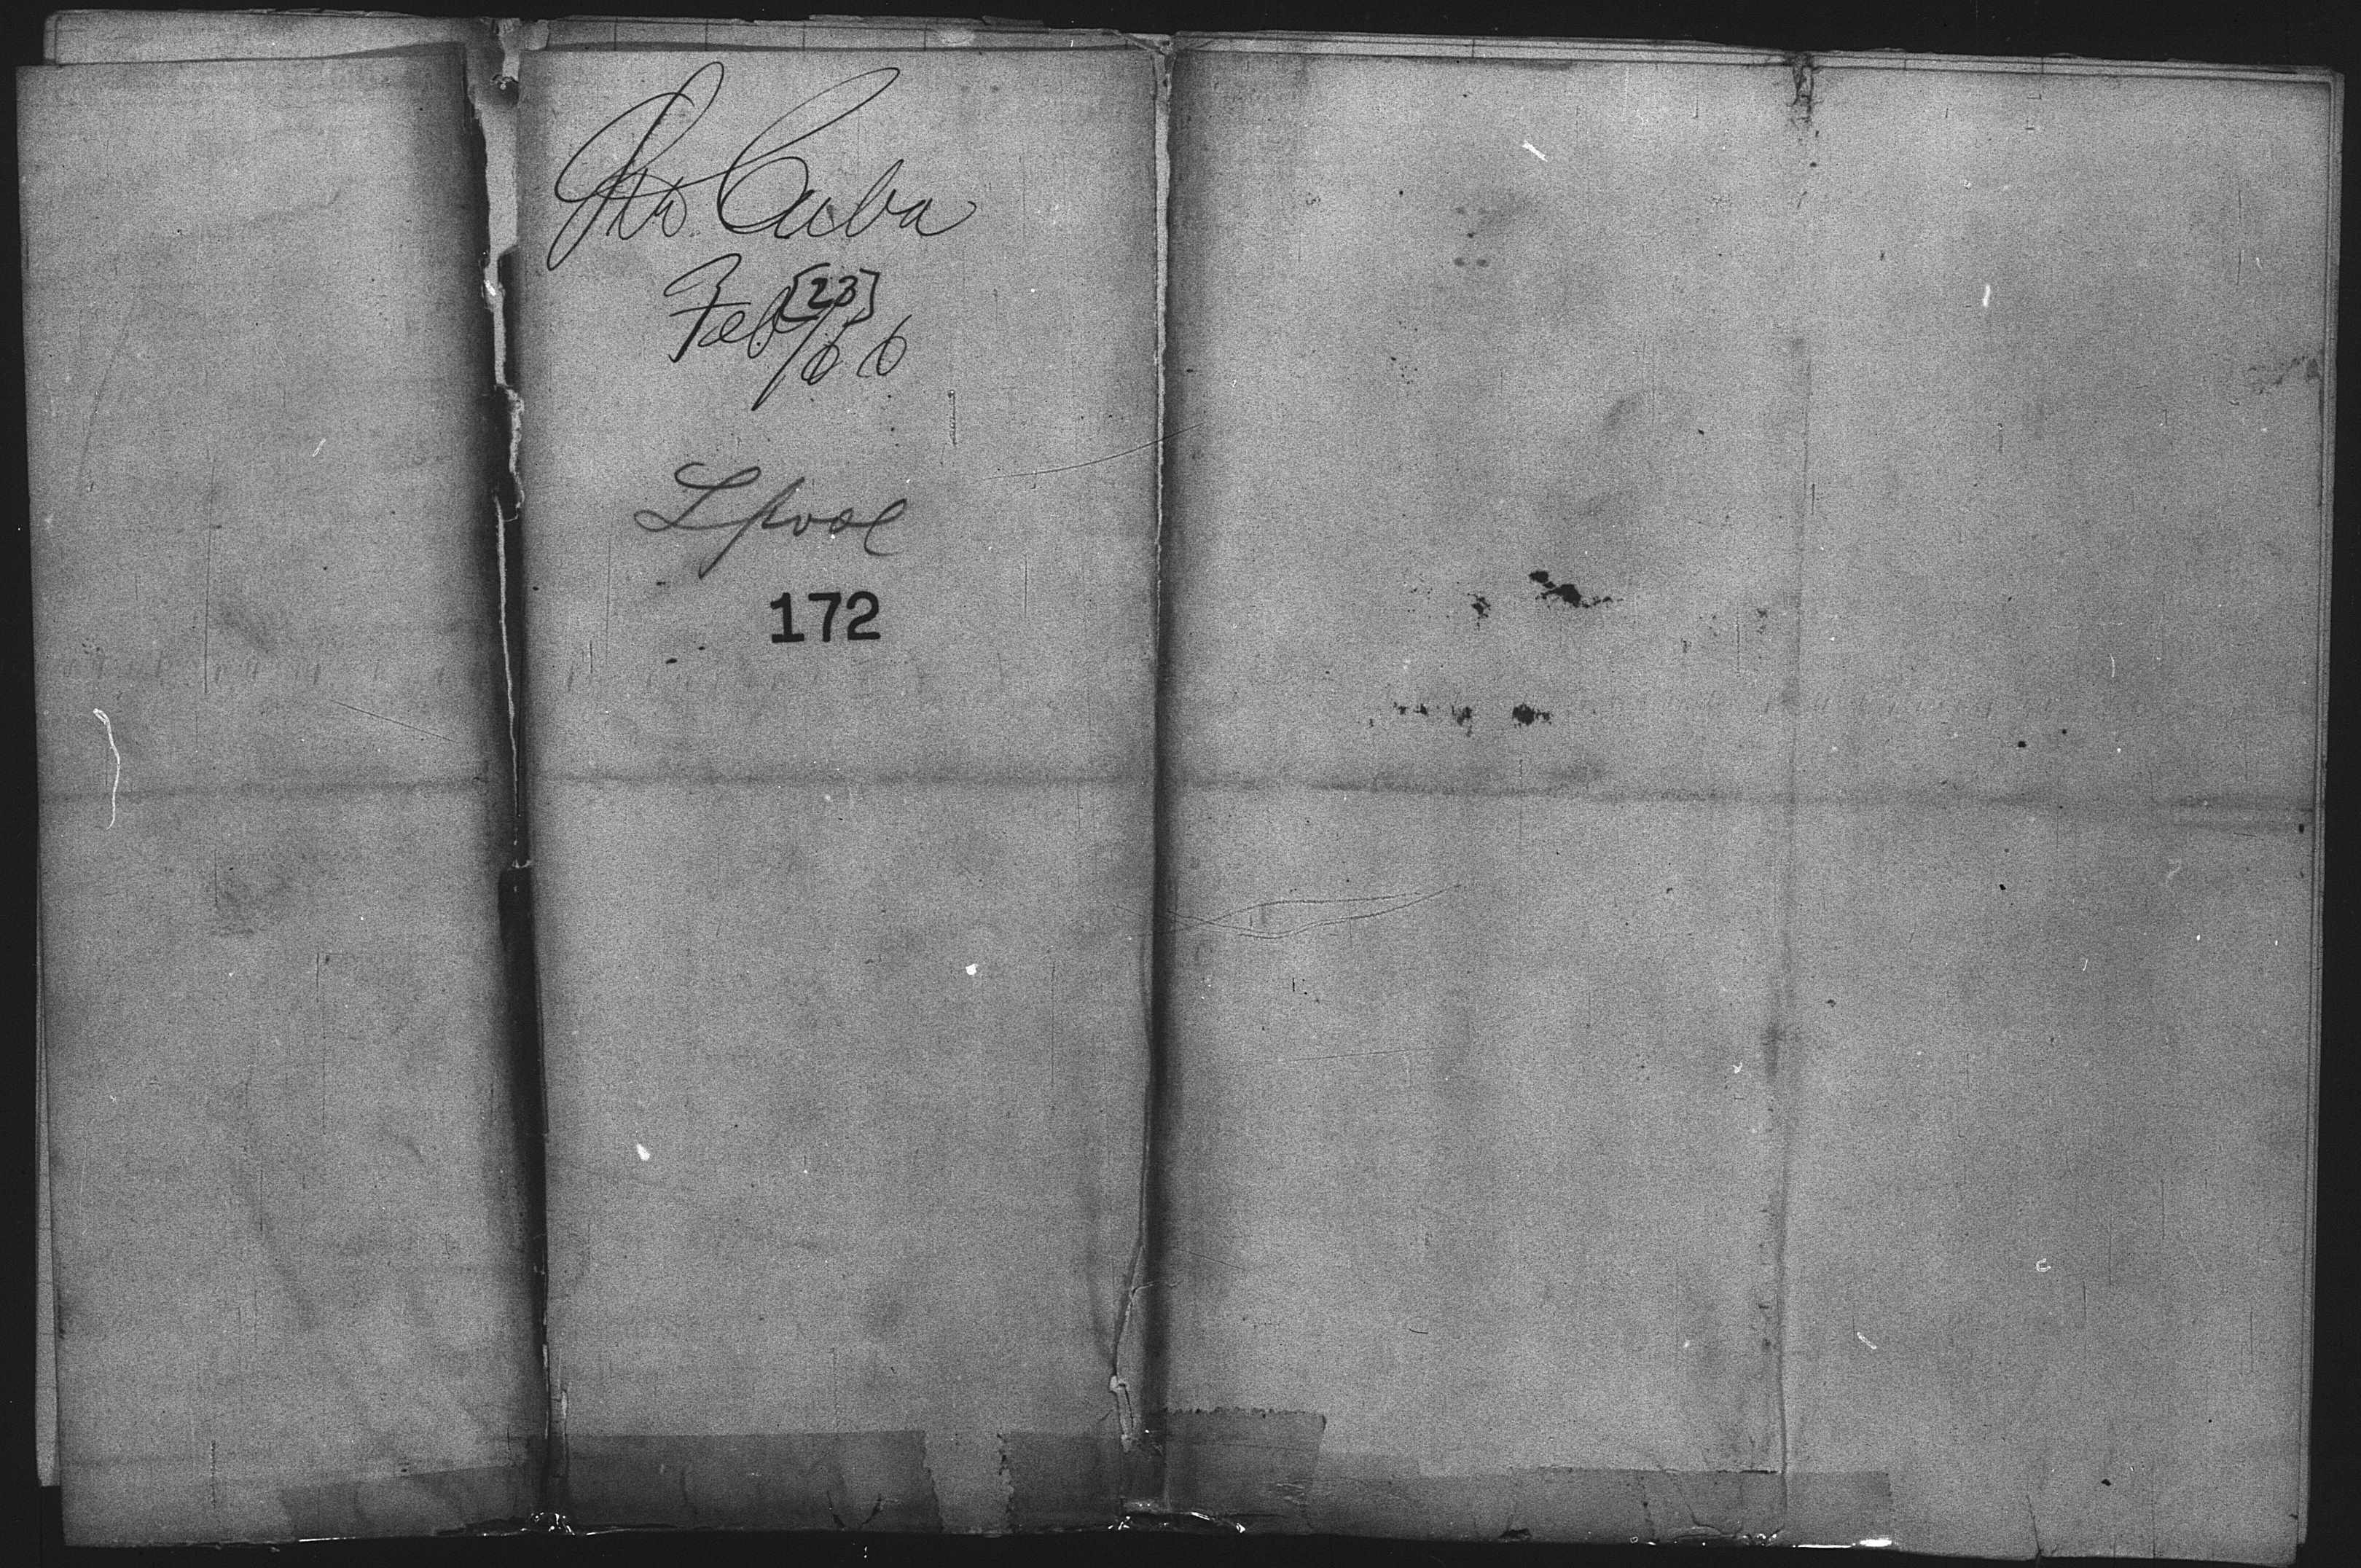 Str Cuba
Feb [23] /66
Lpool
172